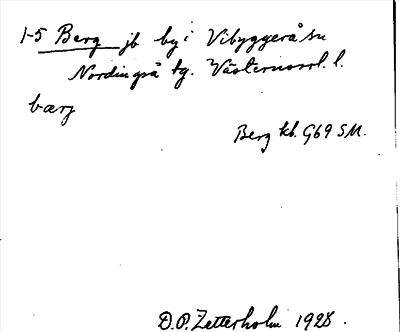 1-5 Berg jb by i Vibyggerå sn
Nordingrå tg. Västernorrl. l.
bærj
Berg kb. G69 SM.
D.O. Zetterholm 1928.